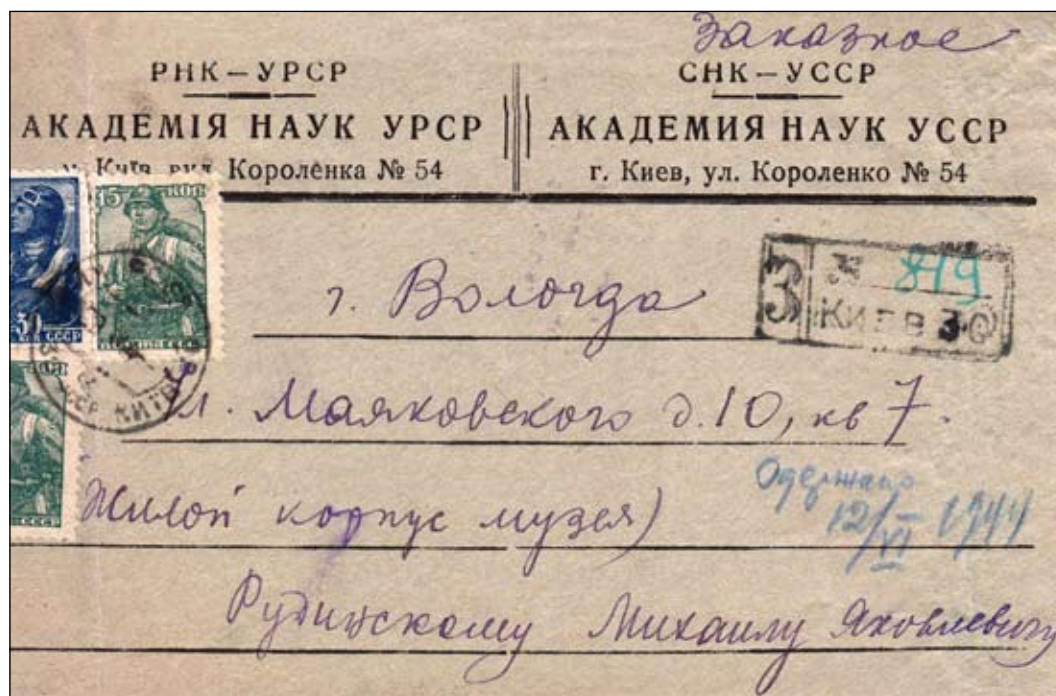 Заказное
РНК – УРСР
АКАДЕМІЯ НАУК УРСР
м. Київ, вул. Короленка № 54
СНК – УССР
АКАДЕМИЯ НАУК УССР
г. Киев, ул. Короленко № 54
15 КОП
30
СССР
КИЇВ
З № 819
КИЕВ 30
г. Вологда
ул. Маяковского д. 10, кв 7.
Жилой корпус музея)
Одержано
12/VI 1944
Рудинскому Михаилу Яковлевичу